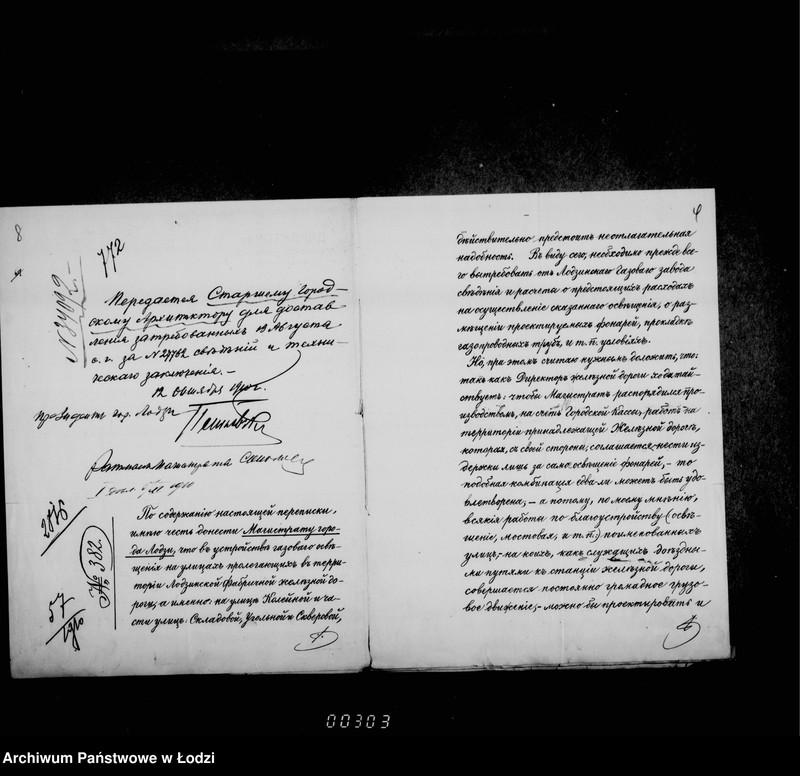 8
772
№34949
Передается Старшему Город-
скому Архитектору для достав
ления затребованных 19 Августа
с. г. за №27762 сведений и техни-
ческаго заключения. –
12 октября 1910 г.
Президент гор. Лодзи
Ратман Магистрата
По содержанию настоящей переписки,
имею честь донести Магистрату горо-
да Лодзи, что в устройстве газоваго осве-
щения на улицах пролегающих в терри-
тории Лодзинской фабричной железной до-
роги, а именно: на улице Колейной и ча-
сти улиц: Складовой, Угольной и Скверовой,
№ 382.
57
1910
4
действительно предстоитъ неотлагательная
надобность. Въ виду сего, необходимо прежде все-
го вытребовать отъ Лодзинскаго Газоваго завода
сведения и расчеты о предстоящихъ расходахъ
на осуществление сказаннаго освещения, о раз-
мещении проектируемыхъ фонарей, прокладке
газопроводныхъ трубъ, и т. п. условияхъ.
Но, при этомъ считаю нужнымъ доложить, что:
такъ какъ Директоръ железной дороги ходатай-
ствуетъ: чтобы Магистратъ распорядился про-
изводствомъ, на счетъ Городской Кассы, работъ на
территории принадлежащей Железной дороге,
которая, съ своей стороны, соглашается нести из-
держки лишь за само освещение фонарей, – то
подобная комбинация едва ли можетъ быть удо-
влетворена; – а потому, по моему мнению,
всякия работы по благоустройству (осве-
щение, мостовая, и т. п.) поименованныхъ
улицъ, – на коихъ, какъ служащихъ подъездны-
ми путями къ станции железной дороги,
совершается постоянно громадное грузо-
вое движение, – можно бы проектировать и
00303
Archiwum Państwowe w Łodzi